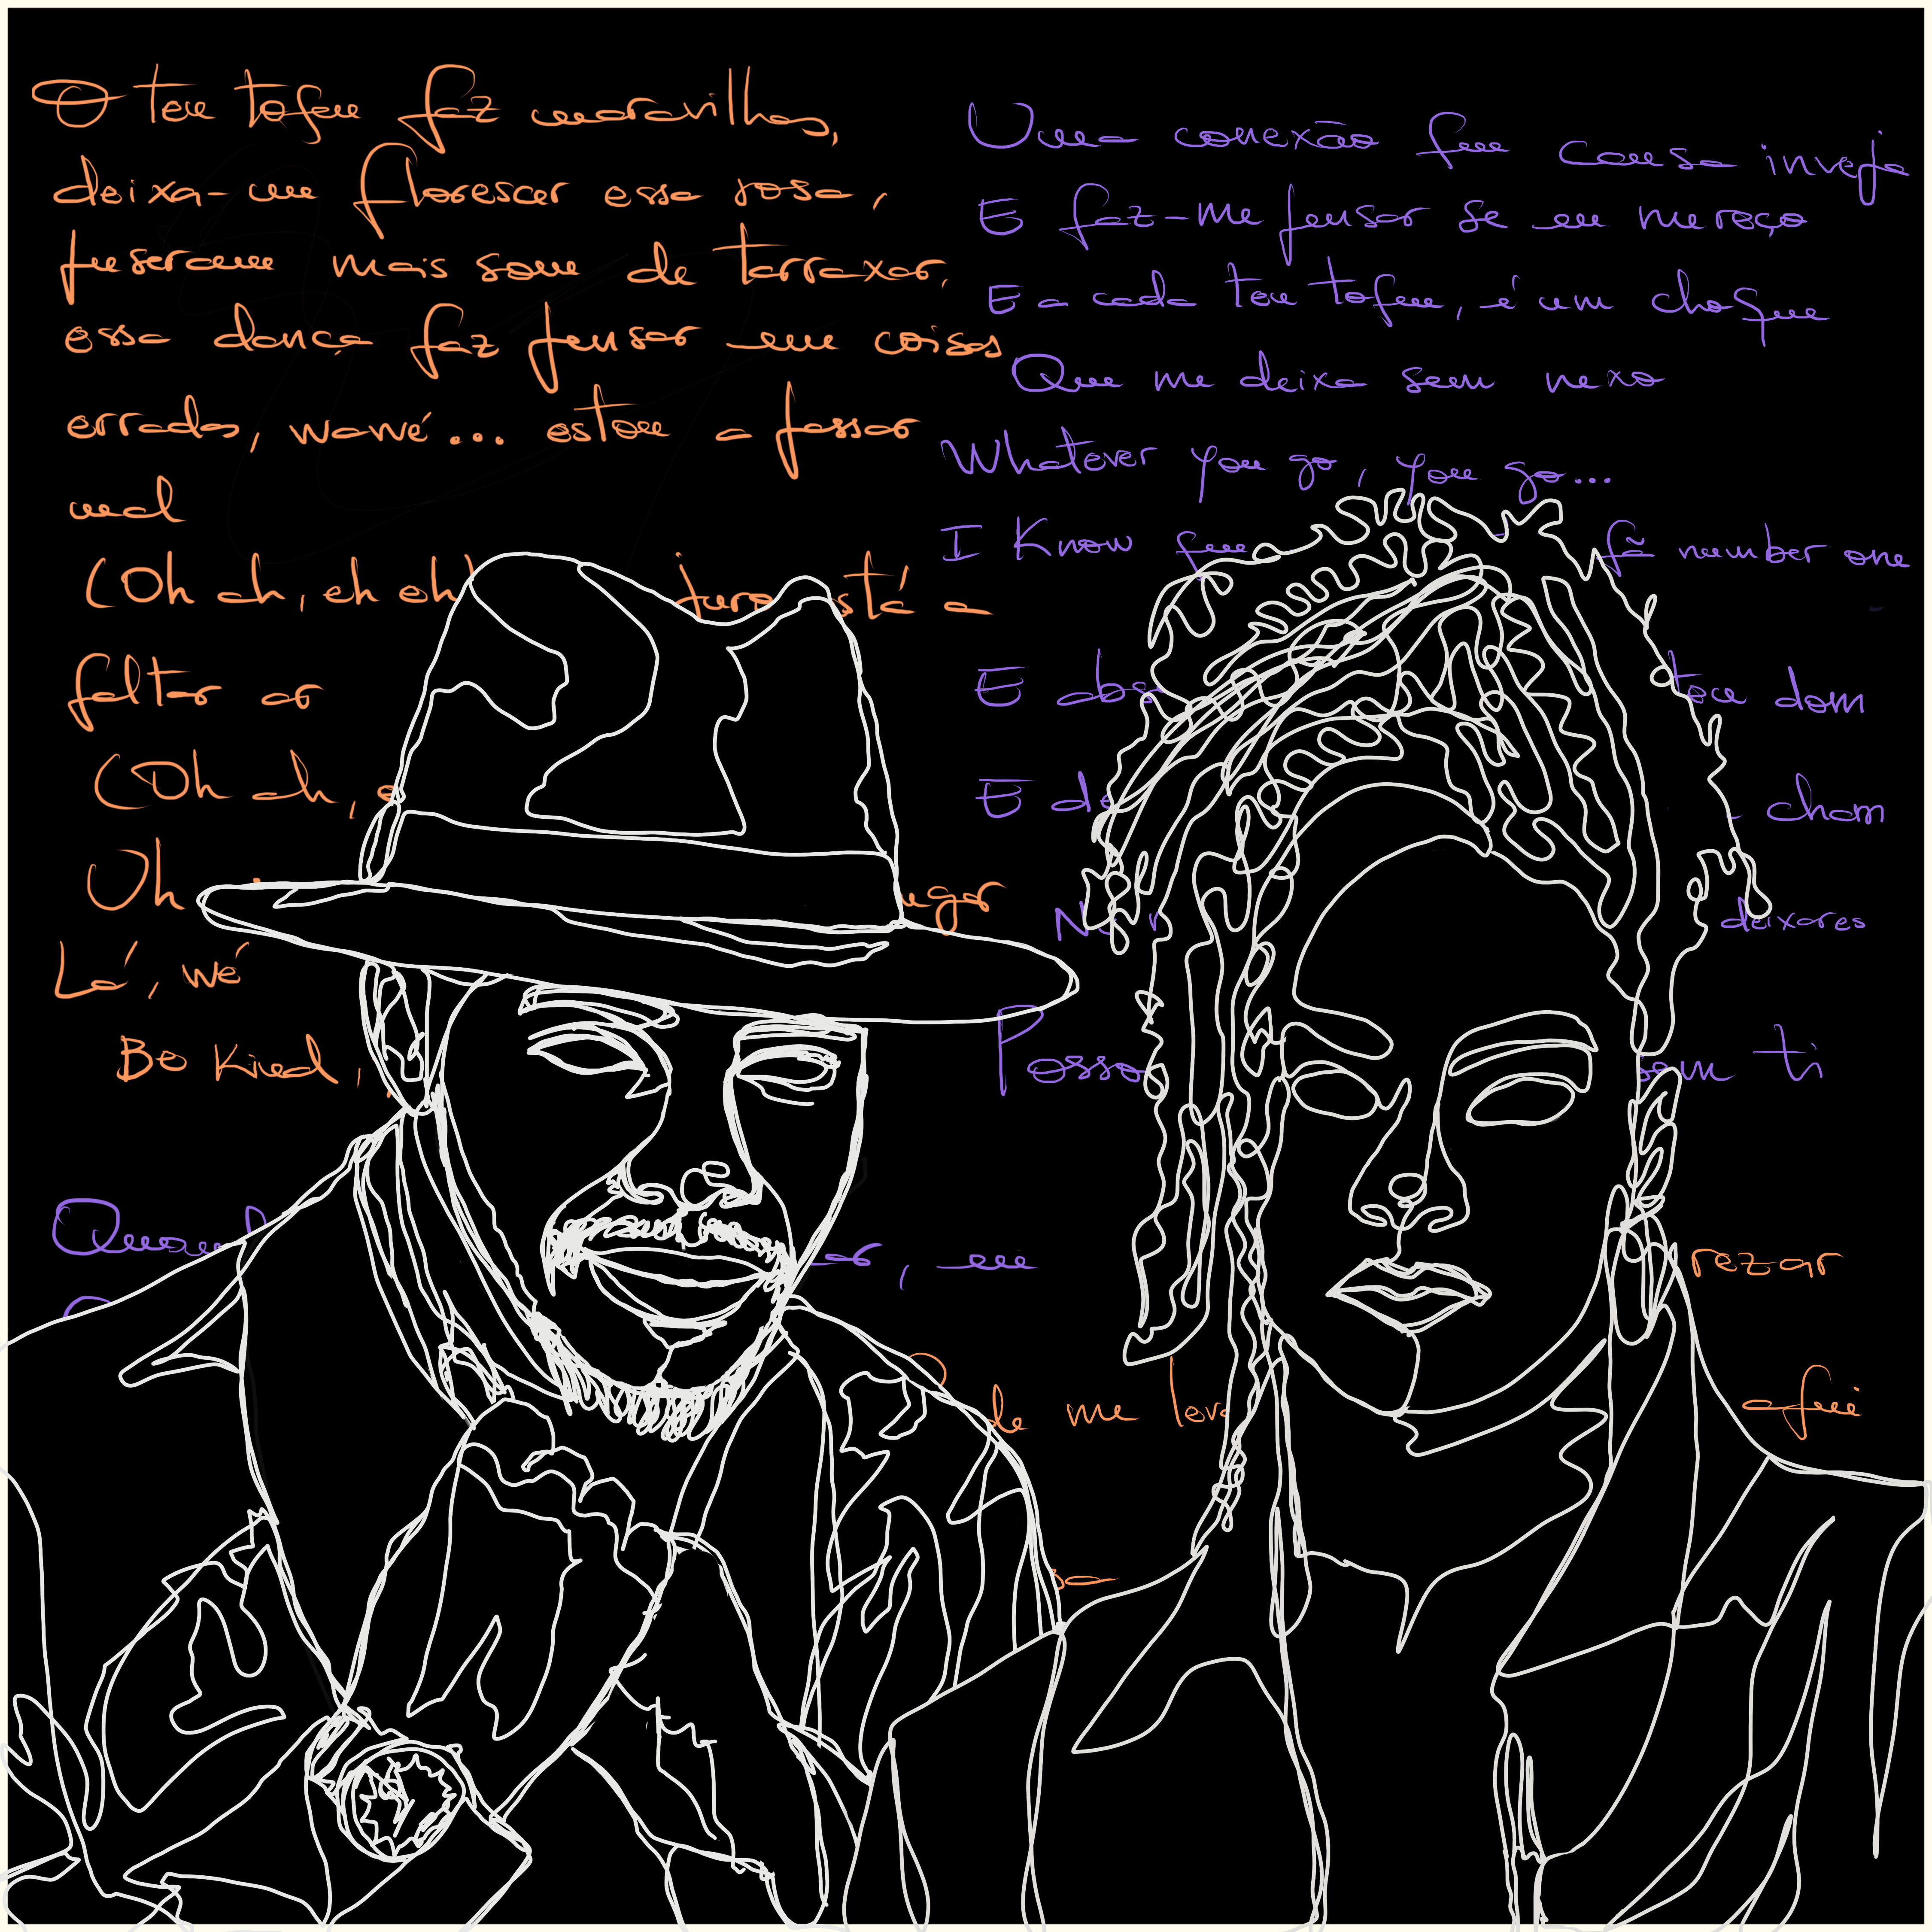 O teu toque faz maravilhas,
deixa-me florescer essa rosa,
puseram mais som de tarraxar,
essa dança faz pensar em coisas
erradas, wawé... estou a passar
mal
(Oh ah, eh eh) juro stá a
faltar ar
(Oh ah, e
Uh ugar
Lá, wé
Bo Kied,
Uma conexão que causa inveja
E faz-me pensar se eu mereço
E a cada teu toque, é um choque
Que me deixa sem nexo
Whatever you go, you go...
I Know que fã number one
E abs teu dom
E de cham
N deixares
Posso sem ti
Quand ar, eu
rezar
de me leva aqui